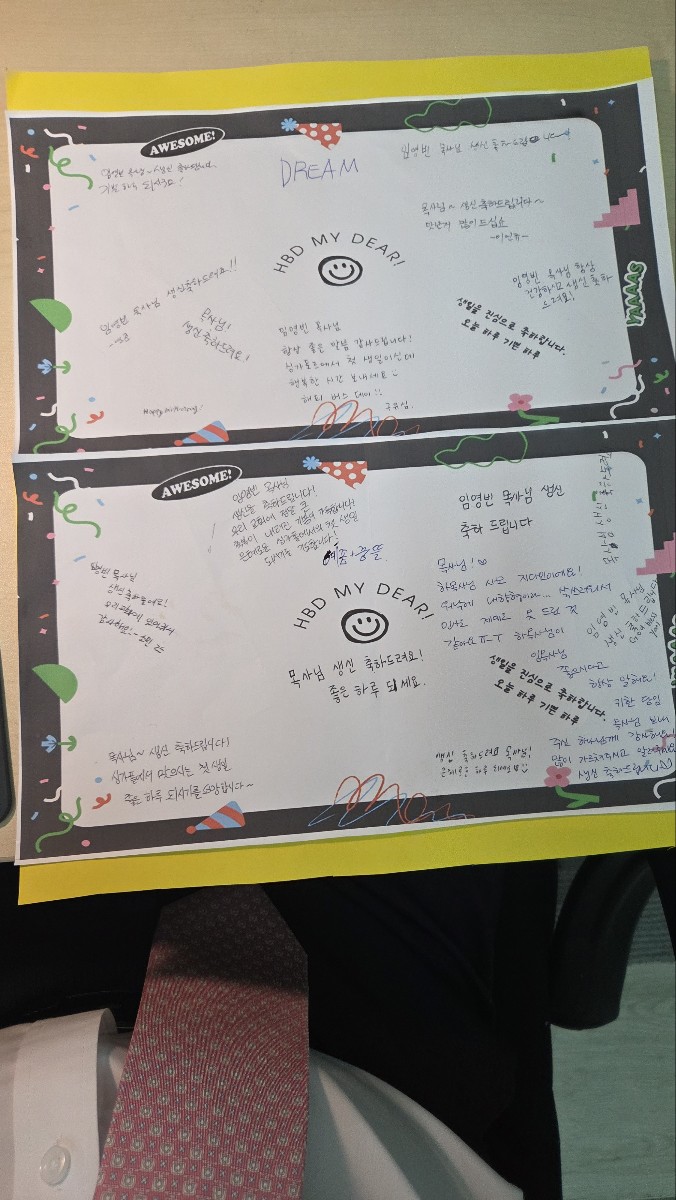 AWESOME!
임영빈 목사님~ 생신 축하드립니다.
기쁜 하루 되세요!
DREAM
임영빈 목사님 생신 축하드립니다
목사님~ 생신 축하드립니다~
맛난거 많이 드십쇼
HBD MY DEAR!
임영빈 목사님 생신 축하드려요!!
목사님!
생신 축하드려요!
임영빈 목사님 항상
건강하시고 생신 축하
드려요!
YAAAS
생일을 진심으로 축하합니다.
오늘 하루 기쁜 하루
임영빈 목사님
항상 좋은 말씀 감사드립니다!
싱가폴에서 첫 생일이신데
행복한 시간 보내세요
해피 버스 데이!!
Happy birthday!
AWESOME!
임영빈 목사님
생신을 축하드립니다!
우리 교회에 젊은
예종·중뜰
임영빈 목사님 생신
축하 드립니다
임영빈 목사님
생신 축하드립니다
God bless
You!
목사님
생신 축하드려요!
우리 교회에 오셔서
감사해요!
HBD MY DEAR!
목사님 생신 축하드려요!
좋은 하루 되세요.
목사님!
하목사님 사모 지다인이에요!
인사도 제대로 못 드린 것
같아요 ㅠㅜ 하목사님이
임목사님
좋으시다고
항상 말해요!
귀한 담임
목사님 보내
주신 하나님께 감사해요
많이 가르쳐주시고 알려주세요
생신 축하드립니다
생일을 진심으로 축하합니다.
오늘 하루 기쁜 하루
목사님~ 생신 축하드립니다!
싱가폴에서 맞으시는 첫 생일
좋은 하루 되시기를 소망합니다~
생신 축하드려요 목사님!